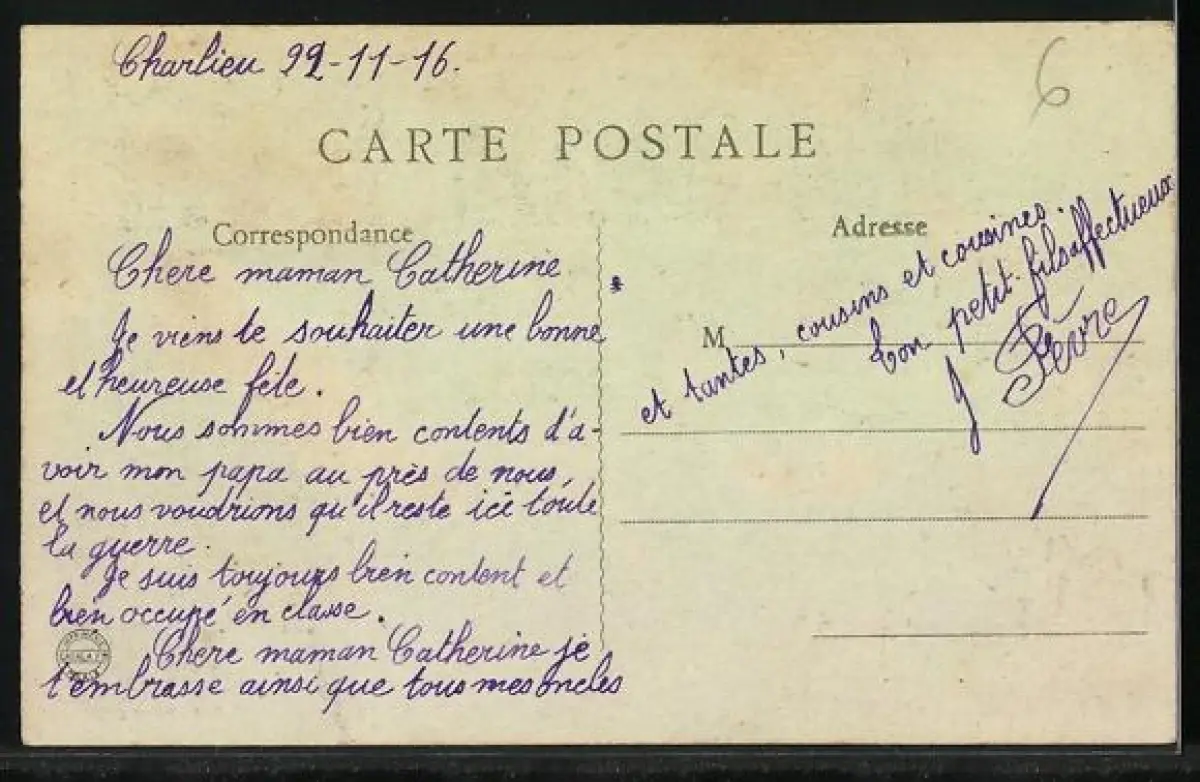 Charlieu 22-11-16.
6
CARTE POSTALE
Correspondance
Adresse
Chere maman Catherine
Je viens te souhaiter une bonne
et heureuse fête.
Nous sommes bien contents d'a-
voir mon papa au près de nous,
et nous voudrions qu'il reste ici toute
la guerre.
Je suis toujours bien content et
bien occupé en classe.
Chere maman Catherine je
t'embrasse ainsi que tous mes oncles
et tantes, cousins et cousines.
Ton petit-fils affectueux
J Fèvre
M